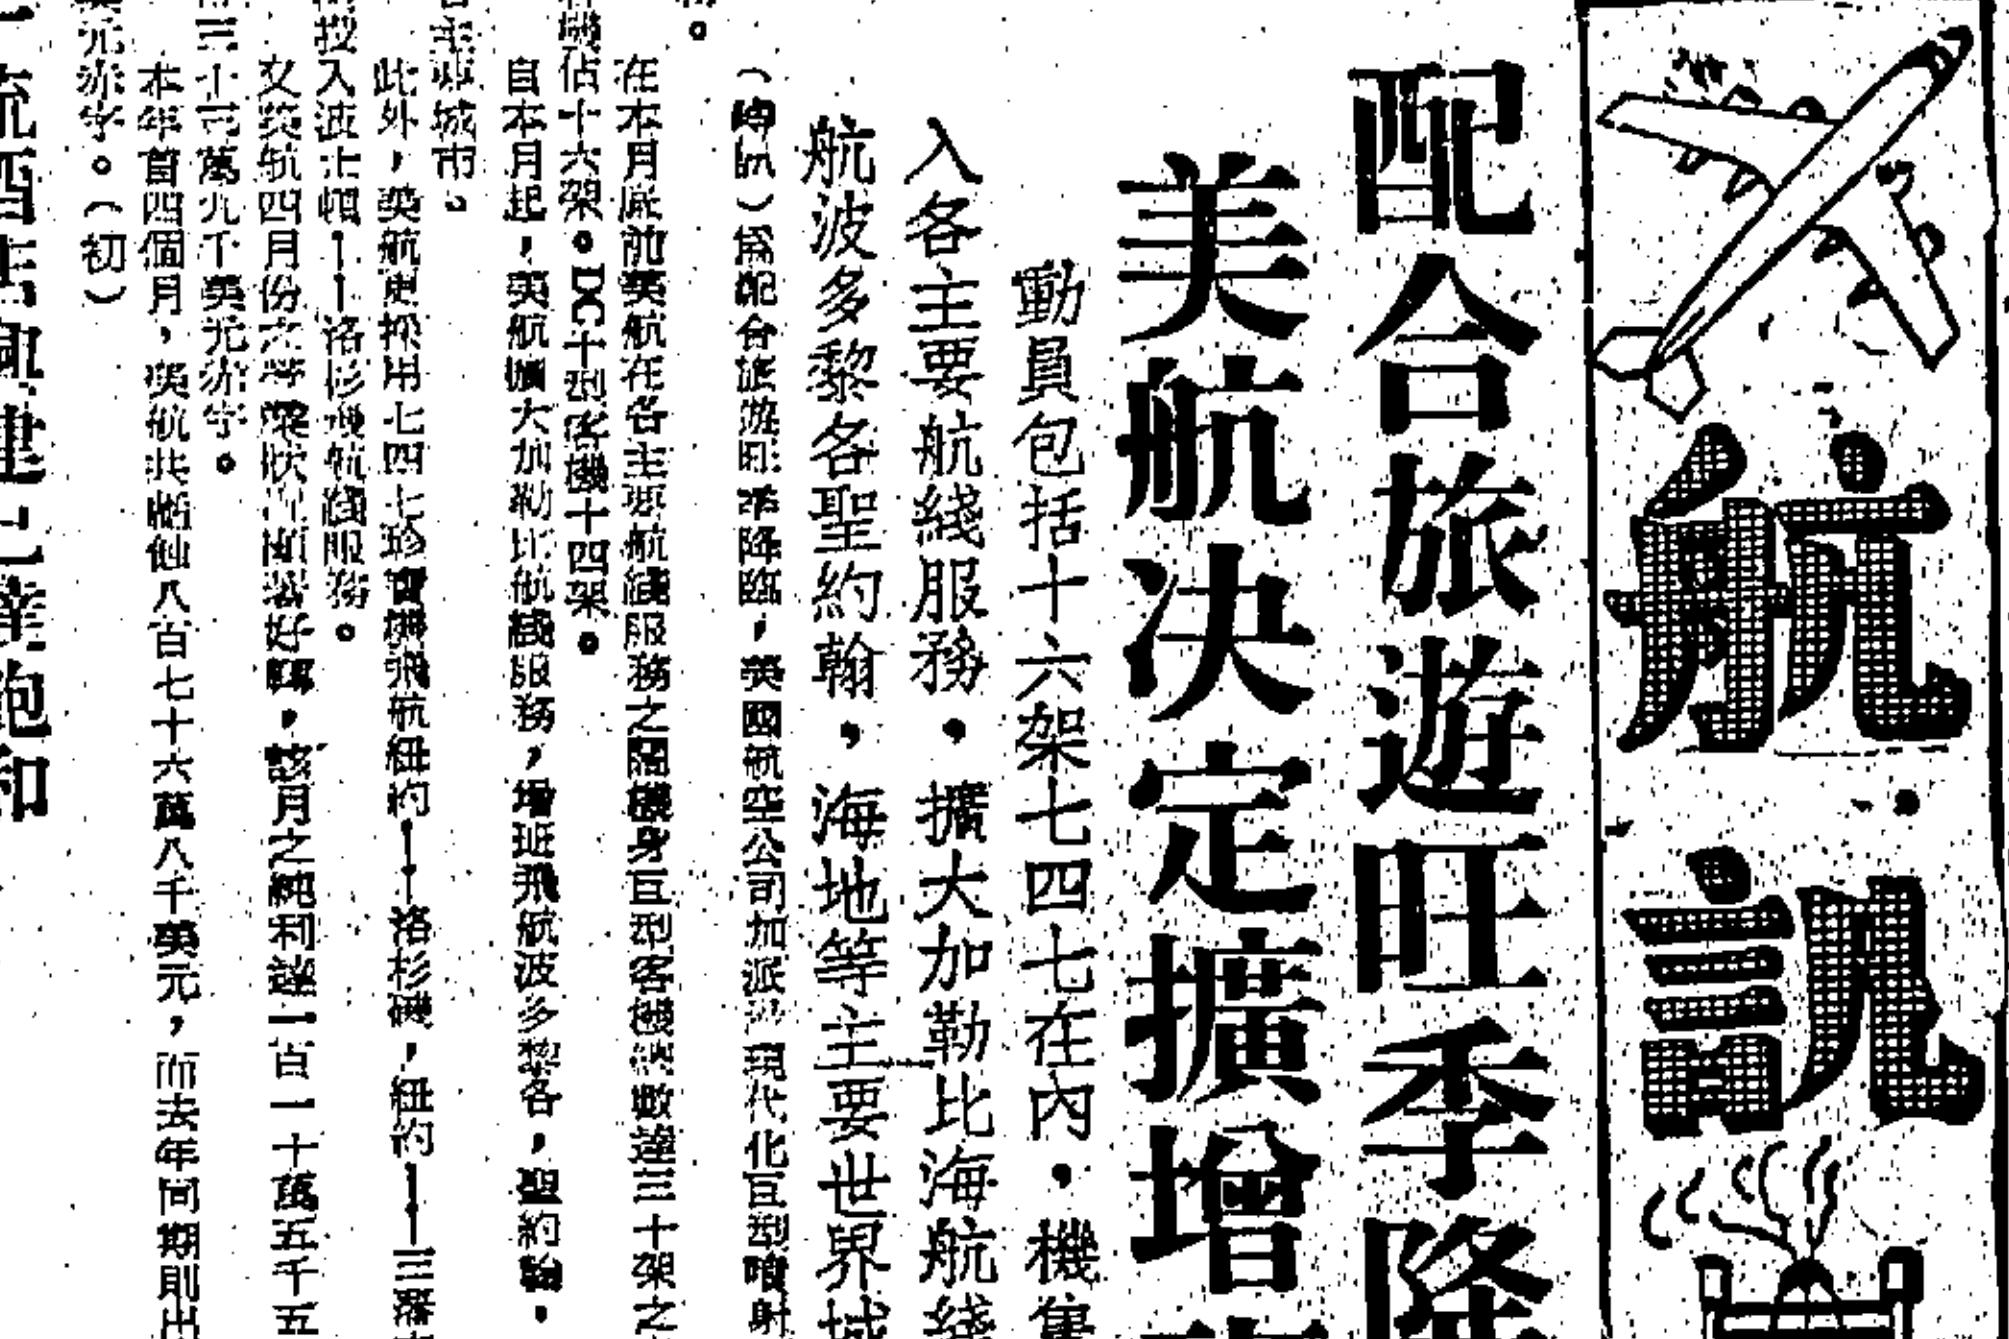 航訊
配合旅遊旺季降
美航决定擴增
動員包括十六架七四七在內·機隻
入各主要航綫服務·擴大加勒比海航綫
航波多黎各聖約翰，海地等主要世界城
（專訊）爲配合旅遊旺季降臨，美國航空公司加派 現代化巨型噴射
在本月底前美航在各主要航綫服務之闊機身巨型客機總數達三十架之
佔十六架。DC十型客機十四架。
自本月起，美航擴大加勒比航綫服務，增班飛航波多黎各，聖約翰·
城市。
此外，美航更採用七四七珍寶機飛航紐約——洛杉磯，紐約——三藩
投入波士頓——洛杉磯航綫服務。
又美航四月份之 業狀 好轉，該月之純利達一百一十萬五千五
三十 萬九千美元赤字。
本年首四個月，美航共虧蝕八百七十六萬八千美元，而去年同期則出
美元赤字。（初）
酒店興建已達飽和